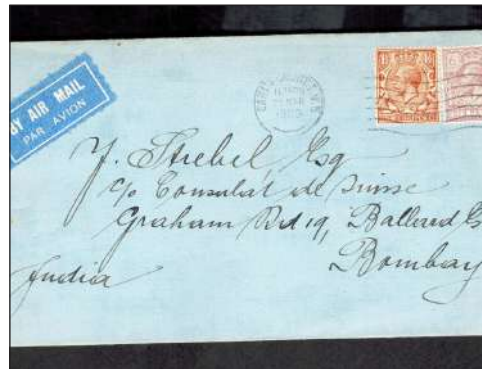 BY AIR MAIL
PAR AVION
EARL'S COURT. S.W.5
J. Strebel, Esq
c/o Consulat de Suisse
Graham Rd 19, Ballard
Bombay
India